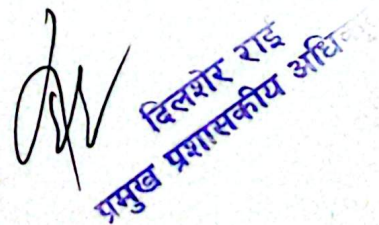 दिलशेर राई
प्रमुख प्रशासकीय